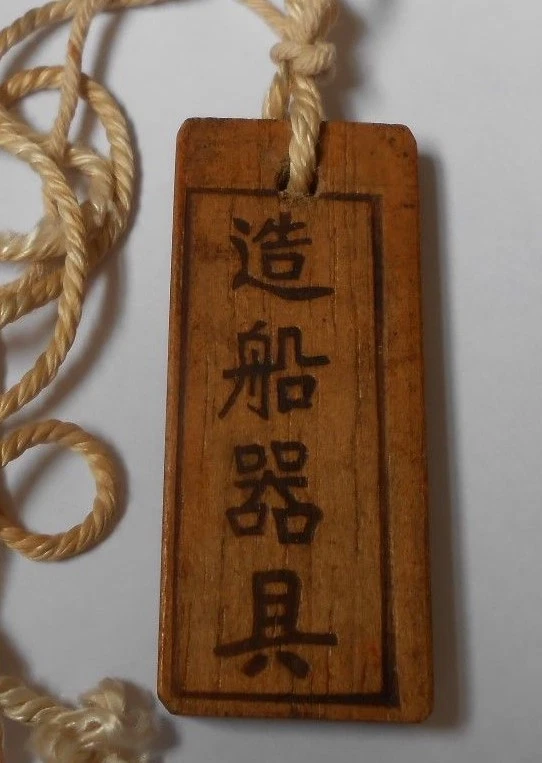 造船器具